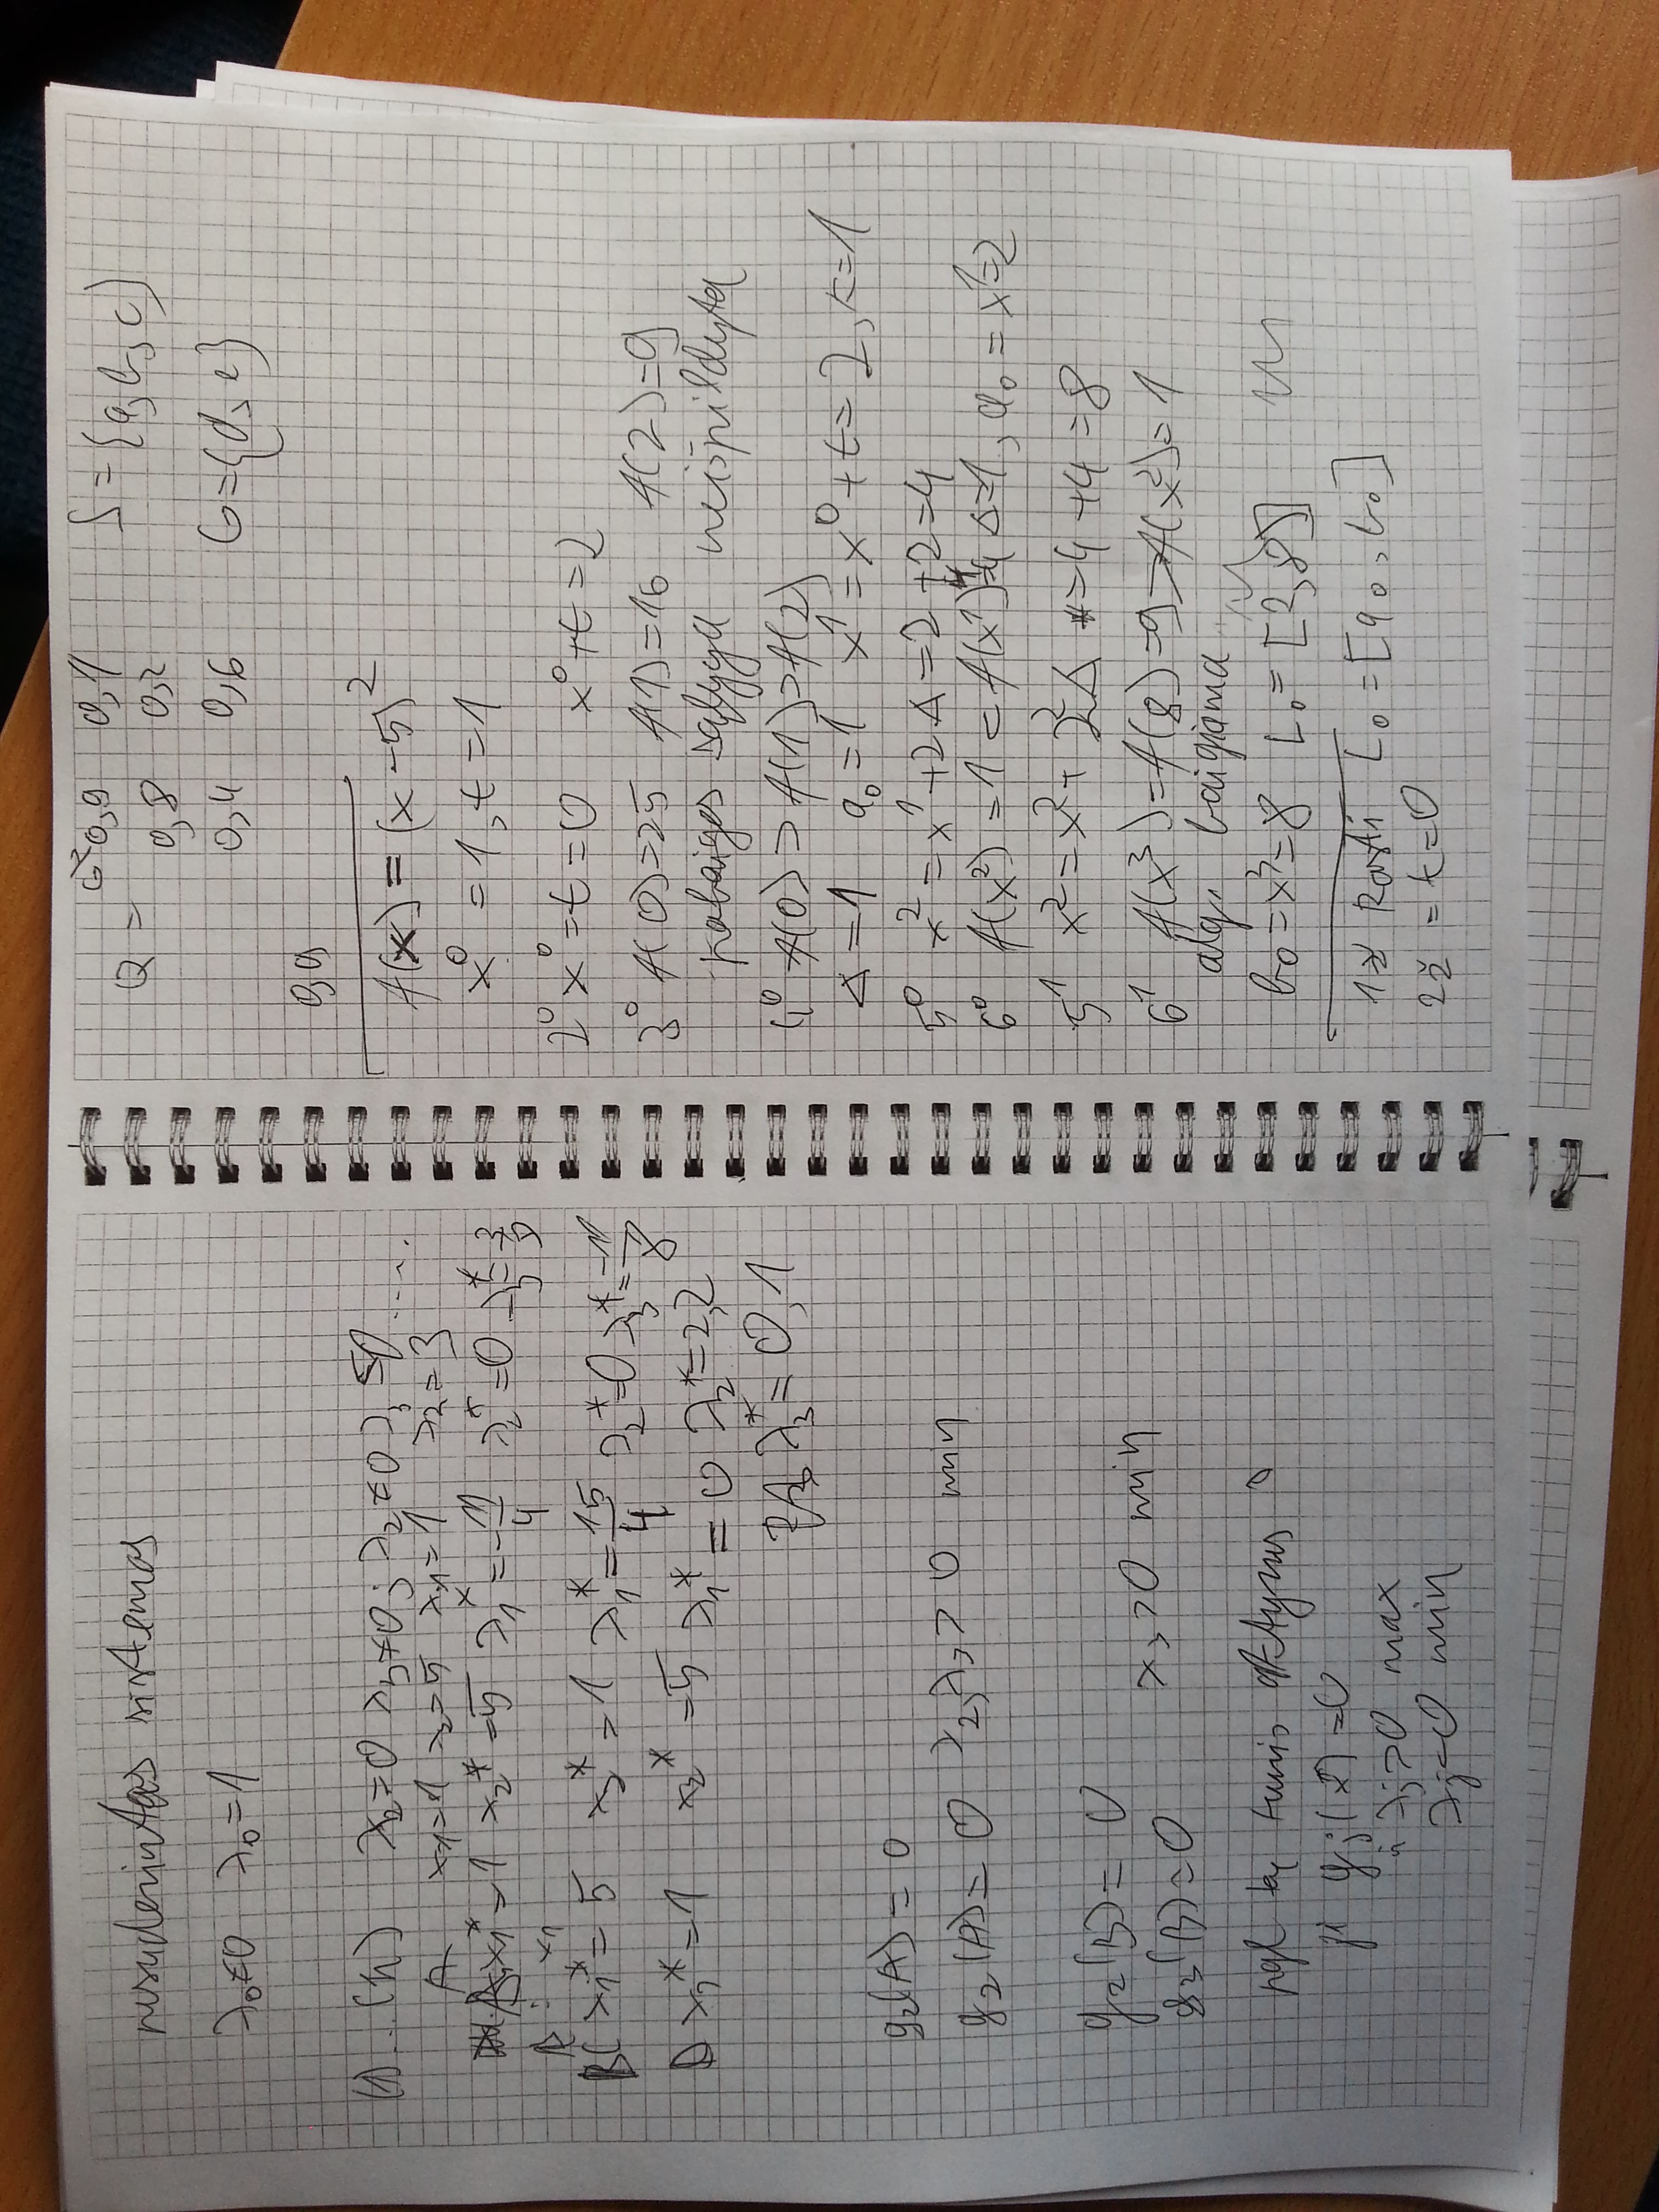 nesuderintas sistemas
λ₀≠0 λ₀=1
(1)...(4) λ₂=0 λ₃≠0; λ₂≠0 λ₃=0 ....
A x₁=1 x₂=5 λ₁=1 λ₂=3
x₁*=1 x₂*=5 λ₁*=-11/4 λ₂*=0
x₁
x₁*=5 x₂*=1 λ₁*=15/4 λ₂*=0 λ₃*=-11/8
D x₁*=1 x₂*=5 λ₁*=0 λ₂*=2,2
λ₃*=0,1
g₂(A)=0
g₂(A)=0 λ₂,λ₃>0 min
g₂(B)=0
g₃(B)=0 λ₃>0 min
aktyvus
gj(x̄)=0
λj>0 max
min
Q = 0,9 0,1 S={a,b,c}
0,8 0,2
0,4 0,6 G={d,e}
0,9
f(x)=(x-5)²
x⁰=1, t=1
2⁰ x⁰=t=0 x⁰+t=2
3⁰ f(0)=25 f(1)=16 f(2)=9
pabaigos sąlyga neišpildyta
4⁰ f(0)>f(1)>f(2)
Δ=1 a₀=1 x¹=x⁰+t=2, k=1
5⁰ x²=x¹+2Δ=2+2=4
6⁰ f(x²)=1<f(x¹)=4 Δ=1, a₀=x¹=2
5¹ x²=x²+2²Δ=4+4=8
6¹ f(x³)=f(8)=9>f(x²)=1
alg. baigiama
b₀=x³=8 L₀=[2,8]
1ž Rasti L₀=[a₀,b₀]
2ž = t=0